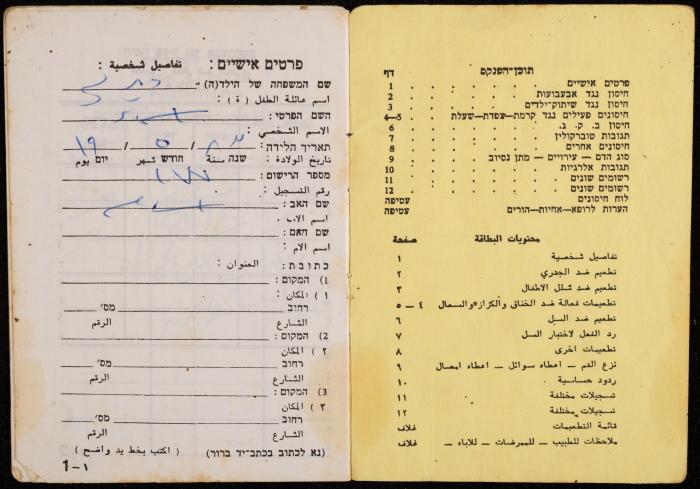 פרטים אישיים : تفاصيل شخصية :
שם המשפחה של הילד(ה)
اسم عائلة الطفل ( ة ) :
השם הפרטי :
الاسم الشخصي :
תאריך הלידה: 19 / 5 /
تاريخ الولادة : יום يوم חודש شهر שנה سنة
מספר הרישום :
رقم التسجيل :
שם האב :
اسم الاب :
שם האם :
اسم الام :
כתובת : العنوان :
1) המקום :
١ ) المكان :
רחוב מס׳
الشارع الرقم
2) המקום :
٢ ) المكان
רחוב מס׳
الشارع الرقم
3) המקום :
٣ ) المكان
רחוב מס׳
الشارع الرقم
(נא לכתוב בכתב־יד ברור) ( اكتب بخط يد واضح )
1-١
תוכן-הפנקס דף
פרטים אישיים 1
חיסון נגד אבעבועות 2
חיסון נגד שיתוק־ילדים 3
חיסונים פעילים נגד קרמת—צפדת—שעלת 4—5
חיסון ב. ק. ג. 6
תגובות טוברקולין 7
חיסונים אחרים 8
סוג הדם — עירויים — מתן נסיוב 9
תגובות אלרגיות 10
רשומים שונים 11
רשומים שונים 12
לוח חיסונים עטיפה
הערות לרופא—אחיות—הורים עטיפה
محتويات البطاقة صفحة
تفاصيل شخصية ١
تطعيم ضد الجدري ٢
تطعيم ضد شلل الاطفال ٣
تطعيمات فعالة ضد الخناق والكزاز والسعال ٤ — ٥
تطعيم ضد السل ٦
رد الفعل لاختبار السل ٧
تطعيمات اخرى ٨
نزع الدم — اعطاء سوائل — اعطاء امصال ٩
ردود حساسية ١٠
تسجيلات مختلفة ١١
تسجيلات مختلفة ١٢
قائمة التطعيمات غلاف
ملاحظات للطبيب — للممرضات — للاباء غلاف